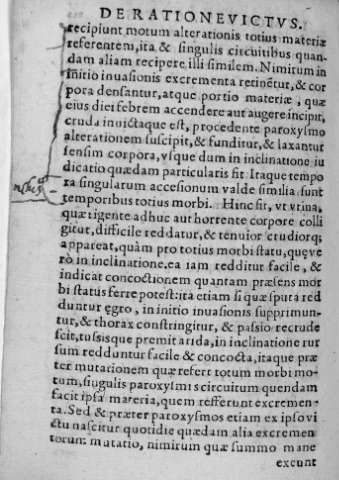 DE RATIONE VICTVS.
recipiunt motum alterationis totius materiæ
referentem, ita & singulis circuitibus quan-
dam aliam recipere illi similem. Nimirum in
initio inuasionis excrementa retinẽtur, & cor
pora densantur, atque portio materiæ, quæ
eius diei febrem accendere aut augere incipit,
cruda inuictaque est, procedente paroxysmo
alterationem suscipit, & funditur, & laxantur
sensim corpora, vsque dum in inclinatione iu
dicatio quædam particularis fit Itaque tempo
ra singularum accesionum valde similia sunt
temporibus totius morbi. Hinc fit, vt vrina,
quæ tigente adhuc aut horrente corpore colli
gitur, difficile reddatur, & tenuior crudiorq;
appareat, quàm pro totius morbi statu, quę ve
rò in inclinatione. ea iam redditur facile, &
indicat concoctionem quantam præsens mor
bi status ferre potest: ita etiam si quæ sputa red
duntur ęgro, in initio inuasionis supprimun-
tur, & thorax constringitur, & passio recrude
scit, tussisque premit arida, in inclinatione rur
sum redduntur facile & concocta, itaque præ
ter mutationem quæ refert totum morbi mo-
tum, singulis paroxysmis circuitum quendam
facit ipsa materia, quem refferunt excremen-
ta. Sed & præter paroxysmos etiam ex ipso vi
ctu nascitur quotidie quædam alia excremen
torum mutatio, nimirum quæ summo mane
exeunt